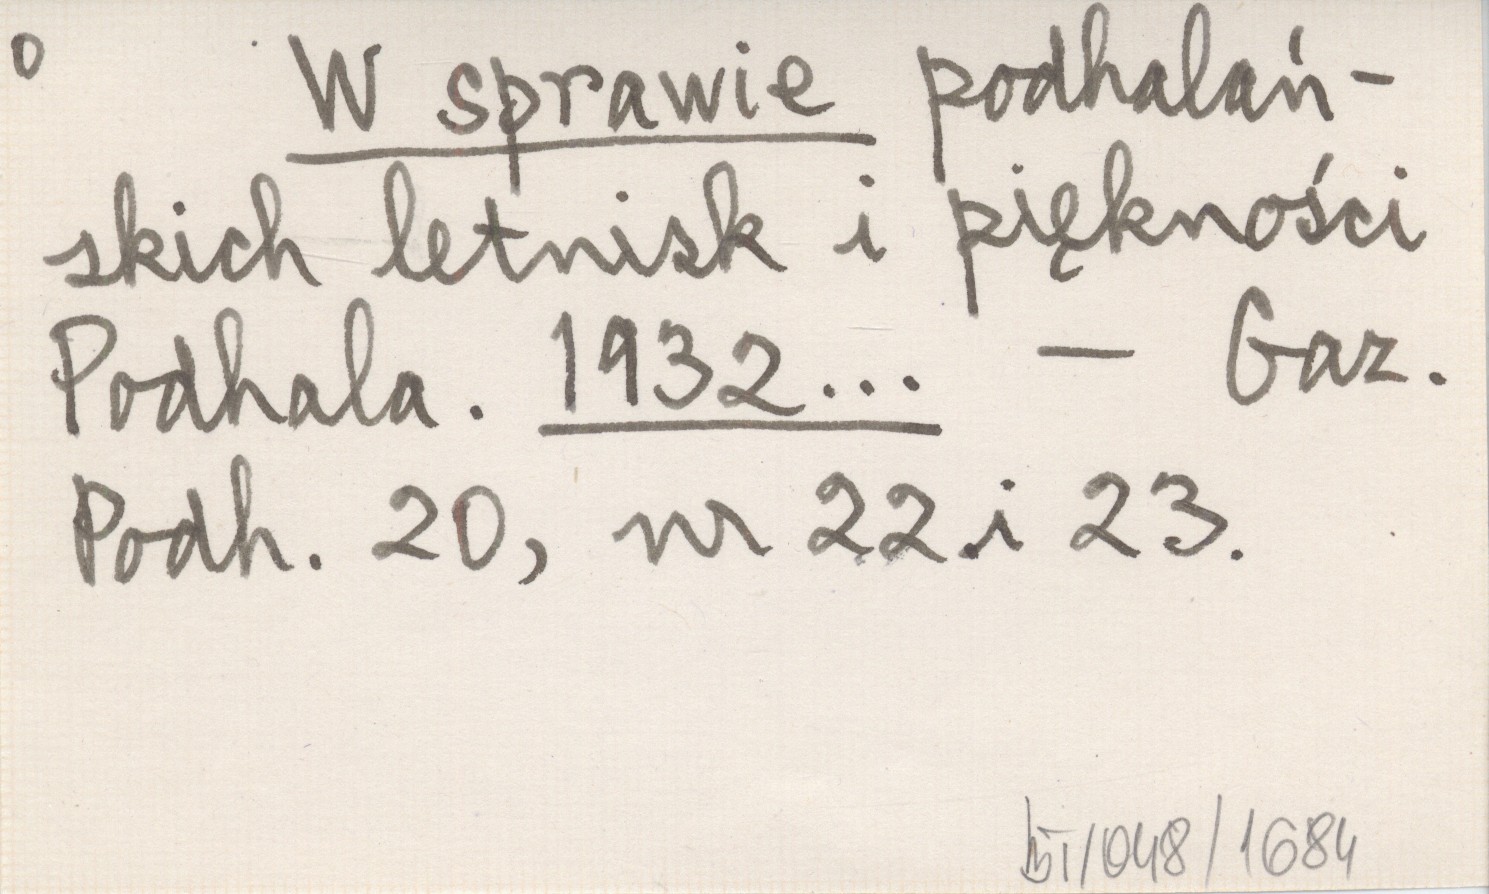 o W sprawie podhalań-
skich letnisk i piękności
Podhala. 1932... — Gaz.
Podh. 20, nr 22 i 23.
/048/1684